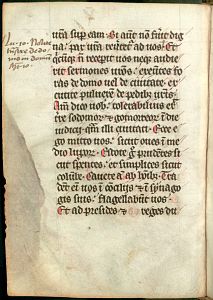 Luc. 10. Nolite
transire de do-
mo in domum
ur͞m sup eam. Si aut͞ nõ fuit dig
na: pax ur͞a reũtet͛ ad uos. Et
q͛cũq͛ nõ recepit uos neq͛ audie
rit sermones ur͞os: exeũtes fo
ras de domo uel de ciuitate: ex
cutite puluerẽ de pedib͛ ur͞is.
Am͞ dico uob͛. tolerabilius erit
t͛re sodomor͛ ⁊ gomorreor͛ in die
iudicij. q͛m illi ciuitati. Ecce e
go mitto uos: sicut oues ĩ me
dio lupor͛. Estote g͛ prudẽtes si
cut s͛pentes. et simplices sicut
colũbe. Cauete a͞ ab hoĩb͛. Tra
dẽt eĩ uos ĩ cõcilijs. ⁊ ĩ synago
gis suis flagellabũt uos.
Et ad presides ⁊ reges du